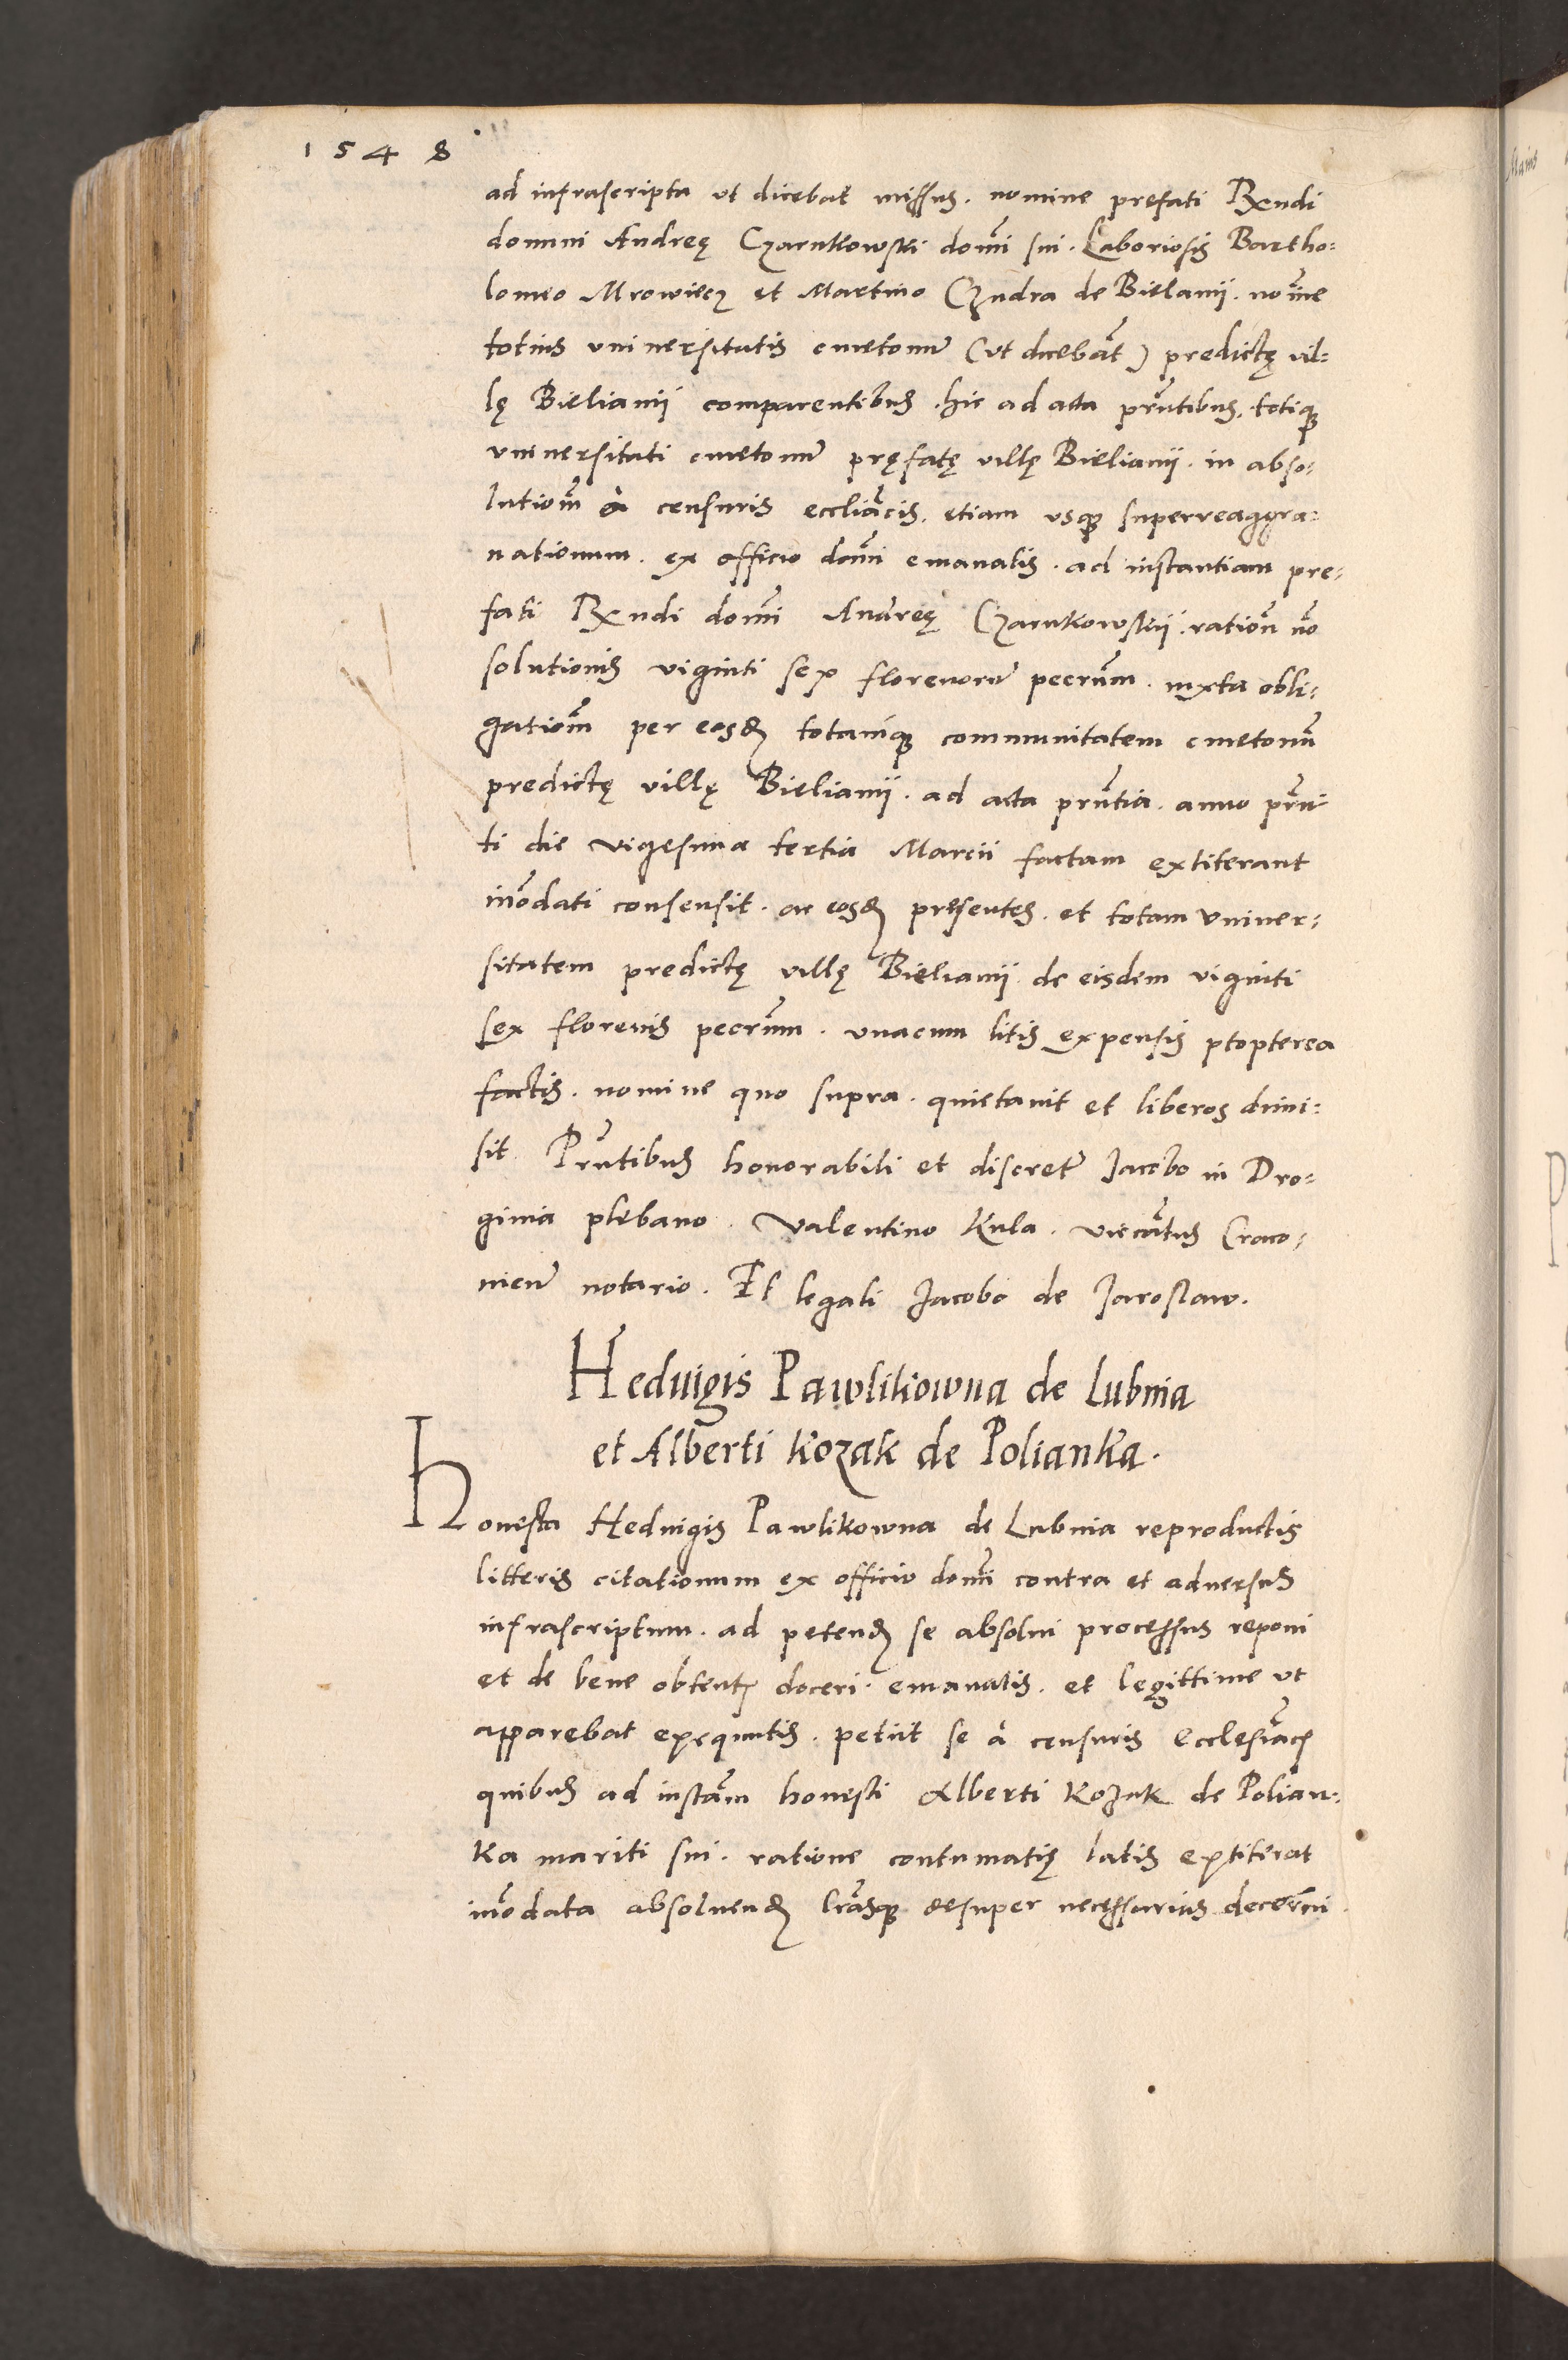 1548
ad infrascripta ut dicebat missus. nomine prefati Rndi
domini Andreę Czarnkowski domi sui. Laboriosis Bartho:
lomeo Mrowiecz et Martino Czudra de Bielanii. noie
totius universitatis cmetonu (ut dicebāt) predictę vil:
lę Bielianii comparentibus. hic ad acta prntibus. totiq;
universitati cmetonu pręfatę villę Bielianii. in abso:
lutiom à censuris eccliācis. etiam usq; superreaggra:
uationum. ex officio domi emanatis. ad instantiam pre:
fati Rndi domi Andreę Czarnkowskii. ration no
solutionis viginti sex florenoru pecrum. iuxta obli:
gatiom per eosd totamq; communitatem cmetonu
predictę villę Bielianii. ad acta prntia. anno prn
ti die vigesima tertia Marcii factam extiterant
inodati consensit. ac eosd presentes. et totam univer:
sitatem predictę villę Bielianii. de eisdem viginti
sex florenis pecrum. unacum litis expensis ptopterea
factis. nomine quo supra. quietavit et liberos dimi:
sit. Prntibus honorabili et discret Jacobo in Dro:
ginia plebano. Valentino Kula. vicātus Craco:
nien notario. Et legali Jacobo de Jaroslaw.
Heduigis Pawlikowna de Lubnia
et Alberti Kozak de Polianka.
Honesta Heduigis Pawlikowna de Lubnia reproductis
litteris citationum ex officio domi contra et adversus
infrascriptum. ad petend se absolui processus reponi
et de bene obtent doceri. emanatis. et legittime ut
apparebat exequutis. petiit se à censuris Ecclesiāc
quibus ad instām honesti Alberti Kozak de Polian:
ka mariti sui. ratione contumatię latis extiterat
inodata absoluend lrasq; desuper necessarias decerni.
Maius
P